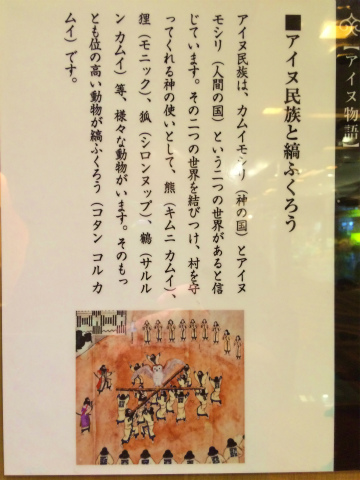 【アイヌ物語】
■アイヌ民族と縞ふくろう
アイヌ民族は、カムイモシリ（神の国）とアイヌ
モシリ（人間の国）という二つの世界があると信
じています。その二つの世界を結びつけ、村を守
ってくれる神の使いとして、熊（キムニ カムイ）、
狸（モニック）、狐（シロンヌップ）、鶴（サルル
ン カムイ）等、様々な動物がいます。そのもっ
とも位の高い動物が縞ふくろう（コタン コル カ
ムイ）です。